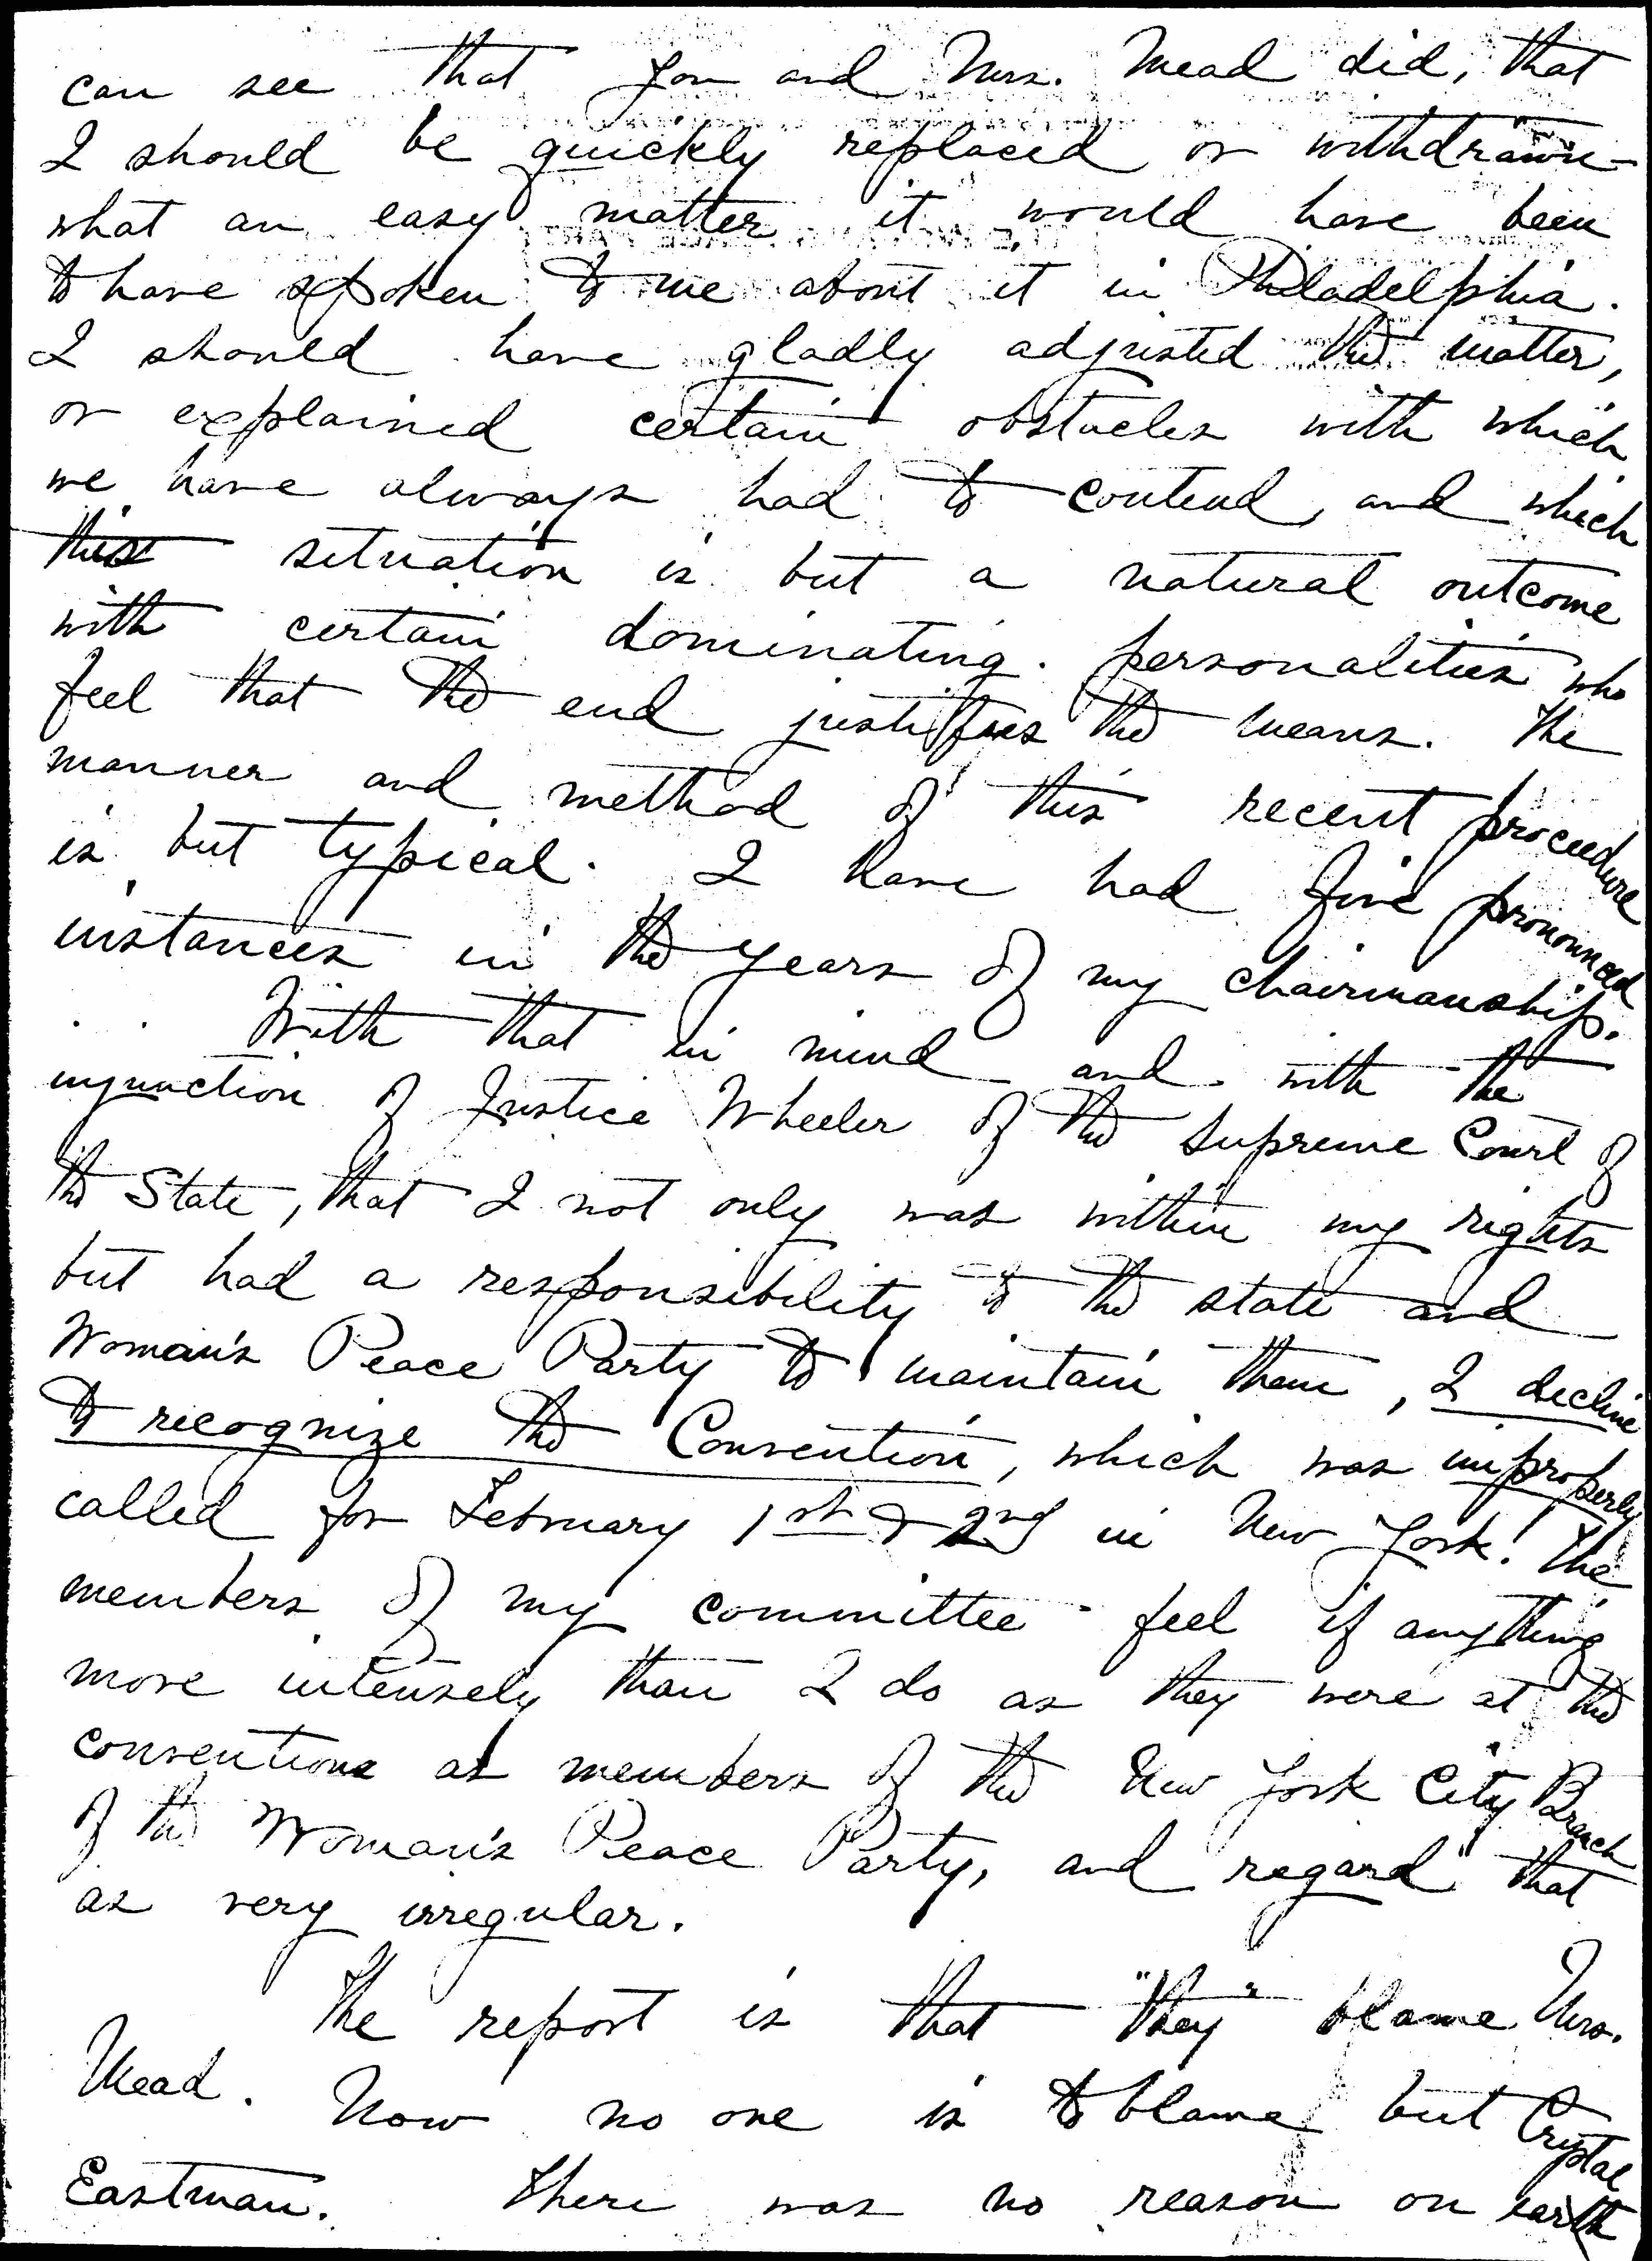 can see that you and Mrs. Mead did, that
I should be quickly replaced or withdrawn –
what an easy matter it would have been
to have spoken to me about it in Philadelphia.
I should have gladly adjusted the matter,
or explained certain obstacles with which
we have always had to contend, and which
this situation is but a natural outcome
with certain dominating personalities who
feel that the end justifies the means. The
manner and method of this recent proceedure
is but typical. I have had five pronounced
instances in the years of my chairmanship.
With that in mind and with the
injunction of Justice Wheeler of the Supreme Court of
the State, that I not only was within my rights
but had a responsibility to the state and
Woman's Peace Party to maintain them, I decline
to recognize the Convention, which was improperly
called for February 1st & 2nd in New York! The
members of my committee feel if anything
more intensely than I do as they were at the
conventions as members of the New York City Branch
of the Woman's Peace Party, and regard that
as very irregular.
The report is that "they" blame Mrs.
Mead. Now no one is to blame but Crystal
Eastman. There was no reason on earth